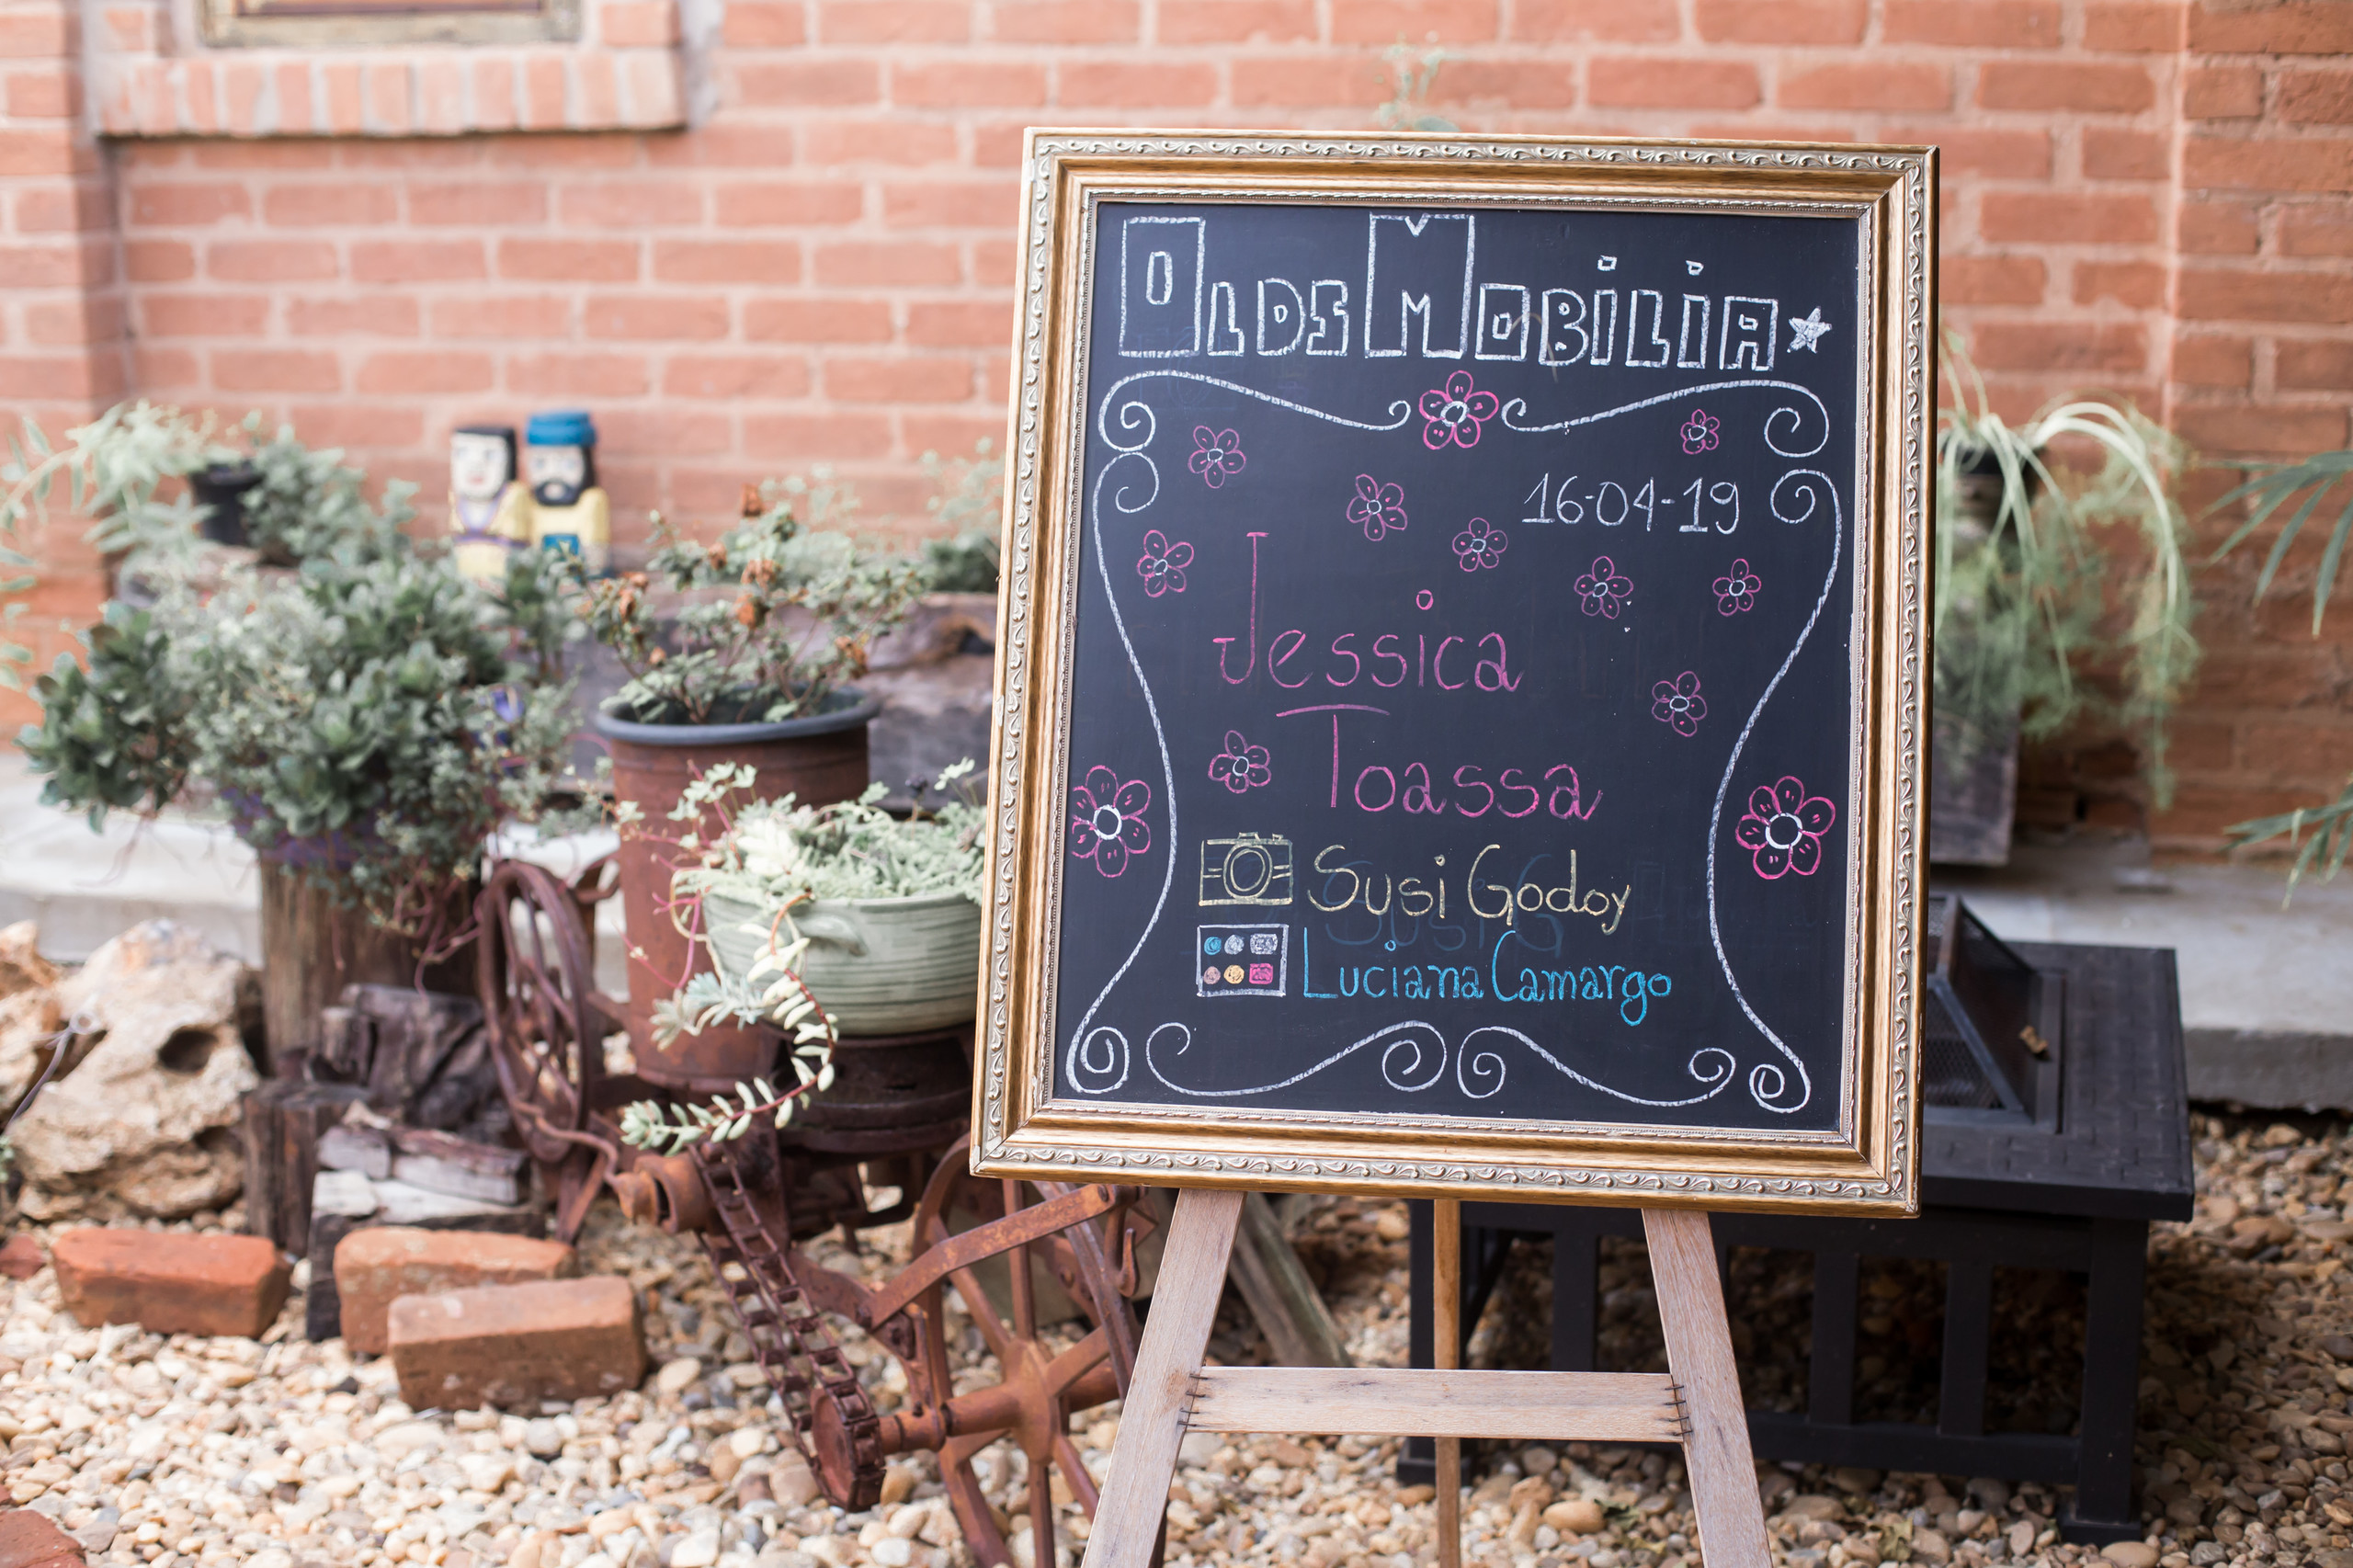 OLDSMOBILIA
16-04-19
Jessica
Toassa
Susi Godoy
Luciana Camargo